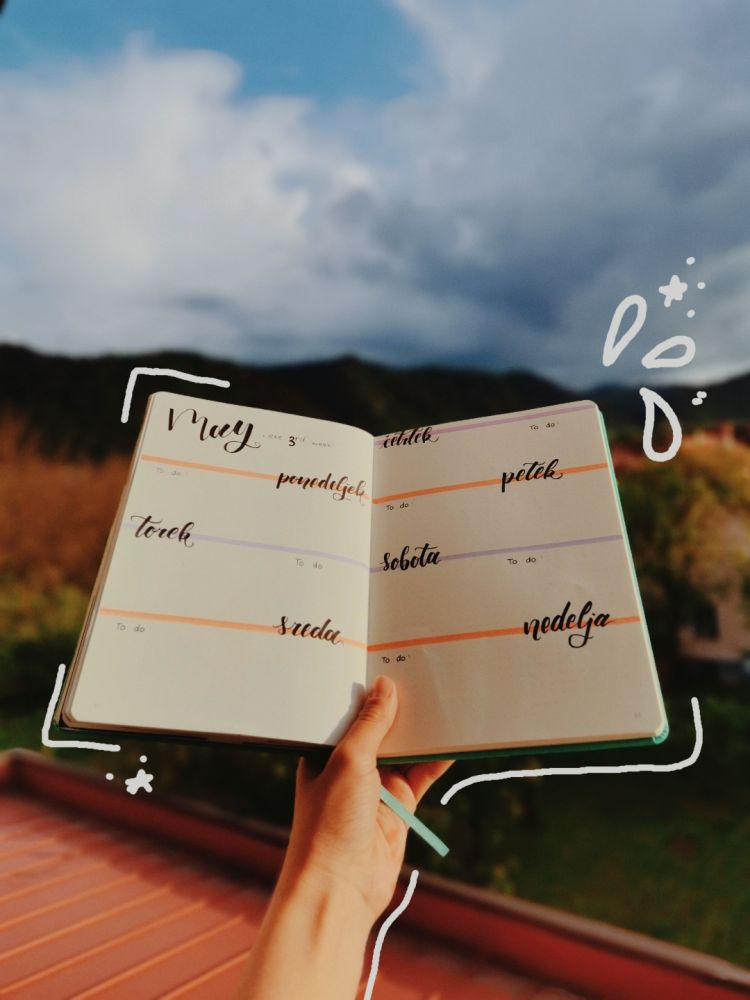 May the 3rd week
To do:
ponedeljek
torek
To do
sreda
To do
četrtek
To do:
petek
To do:
sobota
To do:
nedelja
To do: